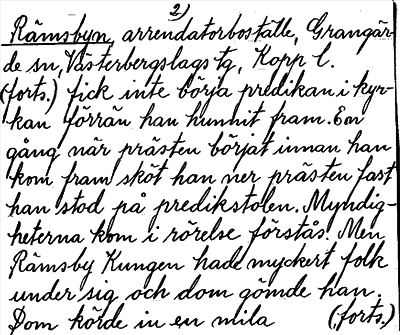 2)
Rämsbyn, arrendatorboställe, Grangär-
de sn, Västerbergslags tg, Kopp l.
(forts.) fick inte börja predikan i kyr-
kan förrän han hunnit fram. En
gång när prästen börjat innan han
kom fram sköt han ner prästen fast
han stod på predikstolen. Myndig-
heterna kom i rörelse förstås. Men
Rämsby Kungen hade myckert folk
under sig och dom gömde han.
Dom körde in en mila (forts.)